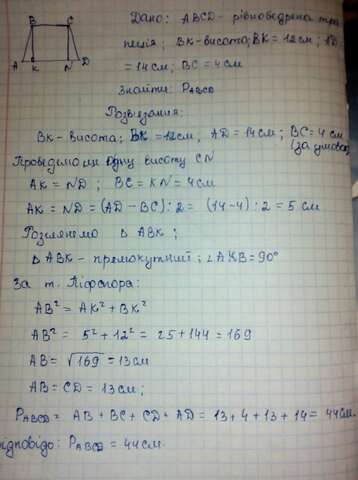 B C
A K N D
Дано: ABCD - рівнобедрена тра
пеція; BK - висота; BK = 12см; AD =
= 14см; BC = 4см
Знайти: P ABCD
Розв'язання:
BK - висота; BK = 12см, AD = 14см; BC = 4 см
(за умовою)
Проведемо ми одну висоту CN
AK = ND; BC = KN = 4см
AK = ND = (AD - BC) : 2 = (14 - 4) : 2 = 5 см
Розглянемо Δ ABK;
Δ ABK - прямокутний; ∠AKB = 90°
За т. Піфагора:
AB² = AK² + BK²
AB² = 5² + 12² = 25 + 144 = 169
AB = √169 = 13см
AB = CD = 13см;
P ABCD = AB + BC + CD + AD = 13 + 4 + 13 + 14 = 44см.
ідповідь: P ABCD = 44см.